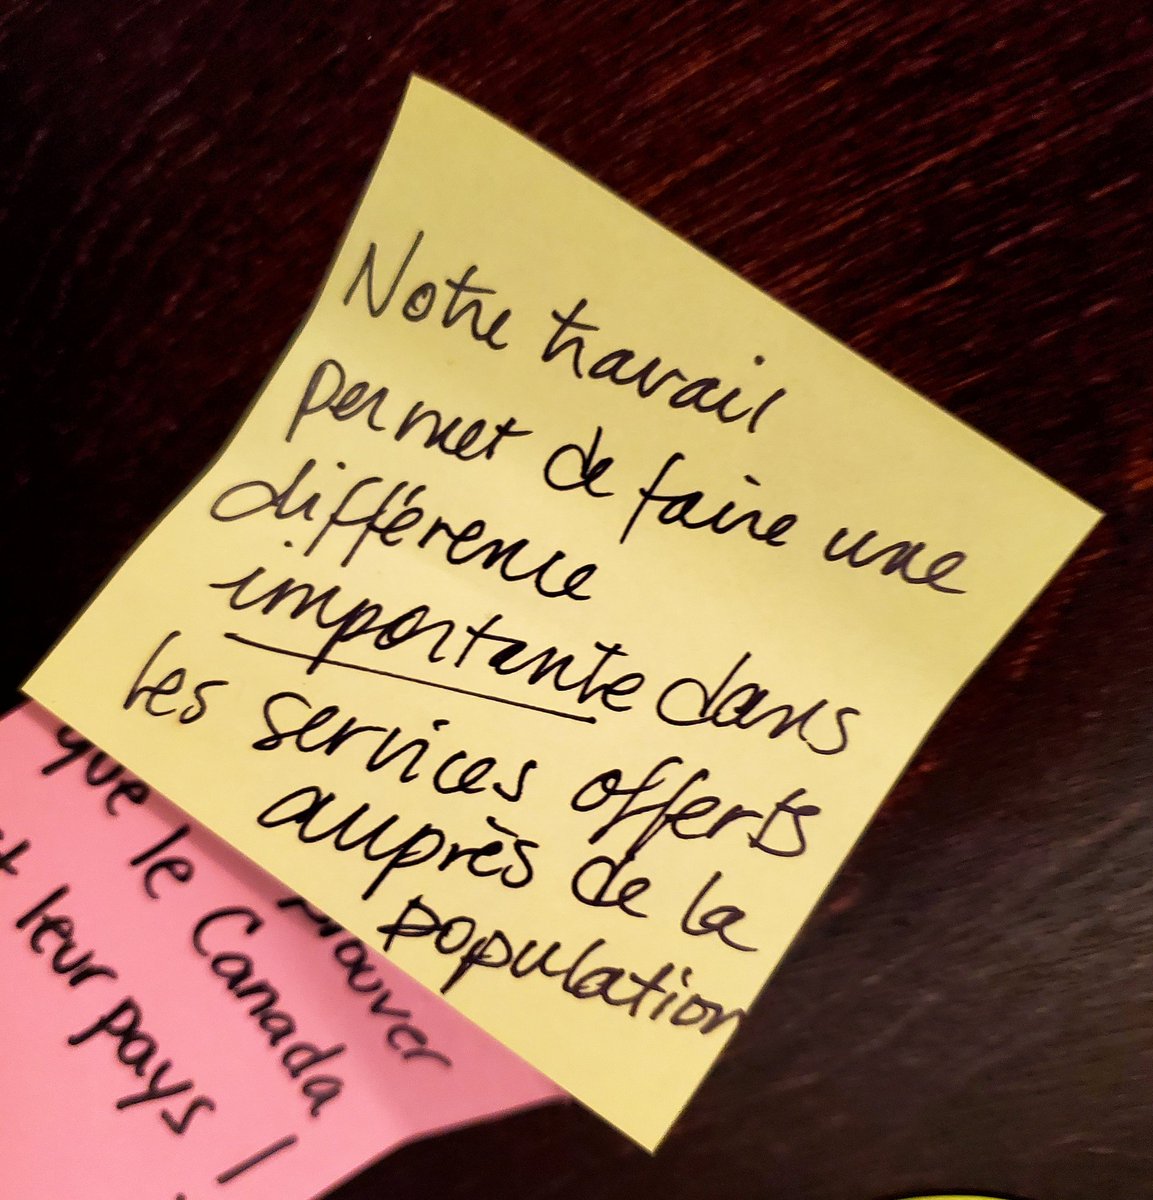 Notre travail
permet de faire une
différence
importante dans
les services offerts
auprès de la
population
prouver
que le Canada
leur pays !